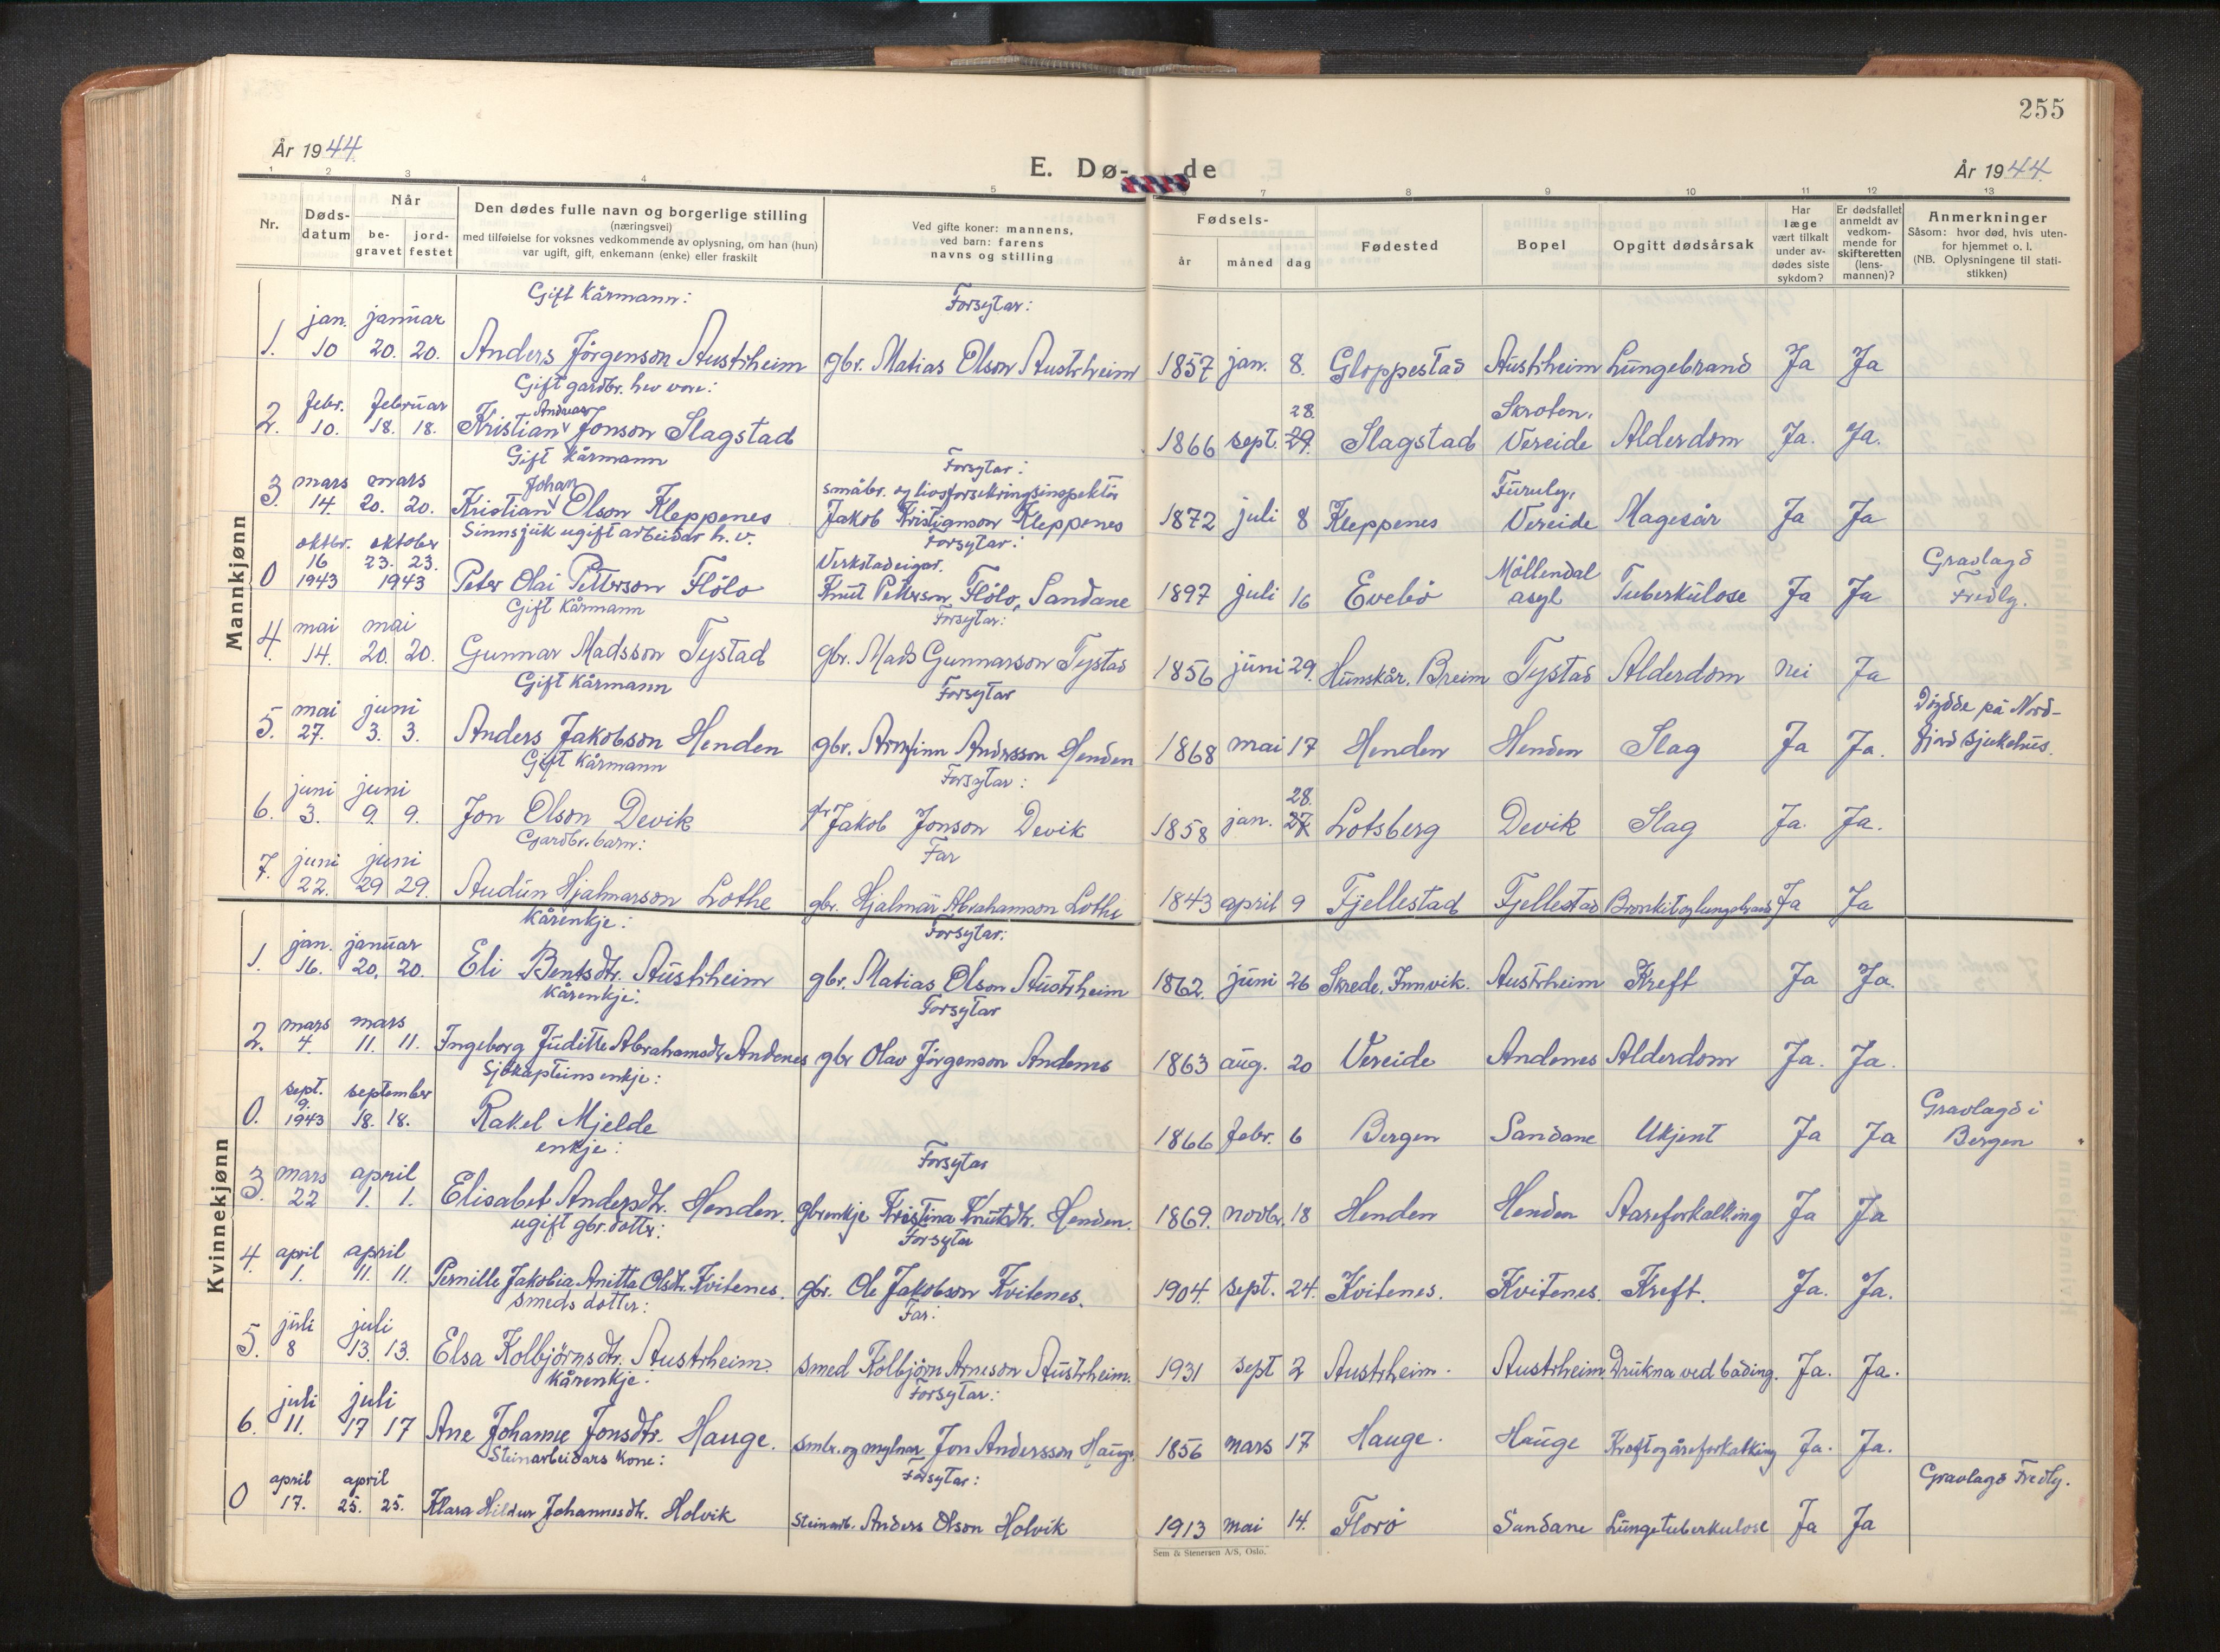 255
År 1944.
E. Dø- de
År 1944.
1 2 3 4 5 7 8 9 10 11 12 13
Nr.
Døds-
datum
Når
be-
gravet
jord-
festet
Den dødes fulle navn og borgerlige stilling
(næringsvei)
med tilføielse for voksnes vedkommende av oplysning, om han (hun)
var ugift, gift, enkemann (enke) eller fraskilt
Ved gifte koner: mannens,
ved barn: farens
navns og stilling
Fødsels-
år måned dag
Fødested
Bopel
Opgitt dødsårsak
Har
læge
vært tilkalt
under av-
dødes siste
sykdom?
Er dødsfallet
anmeldt av
vedkom-
mende for
skifteretten
(lens-
mannen)?
Anmerkninger
Såsom: hvor død, hvis uten-
for hjemmet o. l.
(NB. Oplysningene til stati-
stikken)
Mannkjønn
Gift Kårmann: Forsytar:
jan. januar
1. 10 20. 20. Anders Jørgenson Austrheim gbr. Matias Olson Austrheim 1857 jan. 8. Gloppestad Austrheim Lungebrand Ja Ja
Gift gardbr. hev vore:
febr. februar Andreas 28. Skroten,
2. 10. 18. 18. Kristian Jonson Slagstad 1866 sept. 29. Slagstad Vereide Alderdom Ja. Ja.
Gift Kårmann Forsytar:
mars mars Johan småbr. og livsforsekringsinspektør Furuly,
3. 14. 20. 20. Kristian Olson Kleppenes Jakob Kristianson Kleppenes 1872 juli 8 Kleppenes Vereide Magesår Ja Ja
Sinnsjuk ugift arbeidar h. v. Forsytar:
oktbr. oktober Verkstadeigar. Møllendal Gravlagd
0 16 1943 23. 23. 1943 Peter Olai Petterson Flølo Knut Petterson Flølo, Sandane 1897 juli 16 Evebø asyl Tuberkulose Ja Ja Fredly.
Gift Kårmann Forsytar:
mai mai
4. 14. 20. 20. Gunnar Madsson Tystad gbr. Mads Gunnarson Tystad 1856 juni 29. Hunskår. Breim Tystad Alderdom Nei Ja
Gift Kårmann Forsytar
mai juni Døydde på Nord-
5. 27. 3. 3. Anders Jakobson Henden gbr. Arnfinn Andersson Henden 1868 mai 17 Henden Henden Slag Ja Ja. fjord Sjukehus.
Gift Kårmann Forsytar:
juni juni 28.
6. 3. 9. 9. Jon Olson Devik gbr Jakob Jonson Devik 1858 jan. 27 Lotsberg Devik Slag Ja. Ja.
Gardbr. barn: Far
juni juni
7. 22. 29 29. Audun Hjalmarson Lothe gbr. Hjalmar Abrahamson Lothe 1843 april 9 Fjellestad Fjellestad Bronkit og lungebrand Ja Ja
Kvinnekjønn
Kårenkje: Forsytar:
jan. januar
1. 16. 20. 20. Eli Bentsdtr. Austrheim gbr. Matias Olson Austrheim 1862. juni 26 Skrede. Innvik. Austrheim Kreft Ja Ja.
Kårenkje: Forsytar
mars mars
2. 4. 11. 11. Ingeborg Juditte Abrahamsdtr Andenes gbr Olav Jørgenson Andenes 1863 aug. 20 Vereide Andenes Alderdom Ja. Ja.
Sjøkapteins enkje:
sept. september Gravlagd i
0. 9. 1943 18. 18. Rakel Mjelde 1866 febr. 6 Bergen Sandane Ukjent Ja Ja Bergen
enkje: Forsytar
mars april
3. 22 1. 1. Elisabet Andersdtr. Henden. gbrenkje Kristina Knutsdtr. Henden. 1869. novbr. 18 Henden Henden Aareforkalking Ja Ja
ugift gbr. dotter: Forsytar
april april
4. 1. 11. 11. Pernille Jakobia Anitta Olsdtr. Kvitenes. gbr. Ole Jakobson Kvitenes. 1904. sept. 24. Kvitenes. Kvitenes. Kreft. Ja. Ja.
smeds dotter: Far:
juli juli
5. 8 13. 13. Elsa Kolbjørnsdtr. Austrheim. smed Kolbjørn Arneson Austrheim. 1931 sept 2 Austrheim. Austrheim Drukna ved bading. Ja. Ja.
Kårenkje: Forsytar:
juli juli
6. 11. 17 17 Ane Johanne Jonsdtr. Hauge. smbr. og mylnar Jon Andersson Hauge. 1856 mars 17 Hauge. Hauge Kreft og åreforkalking Ja. Ja.
Steinarbeidars kone: Forsytar:
april april Gravlagd Fredly.
0 17. 25. 25. Klara Hildur Johannesdtr. Holvik steinarb. Anders Olson Holvik 1913 mai 14. Florø Sandane Lungetuberkulose Ja Ja
Sem & Stenersen A/S, Oslo.